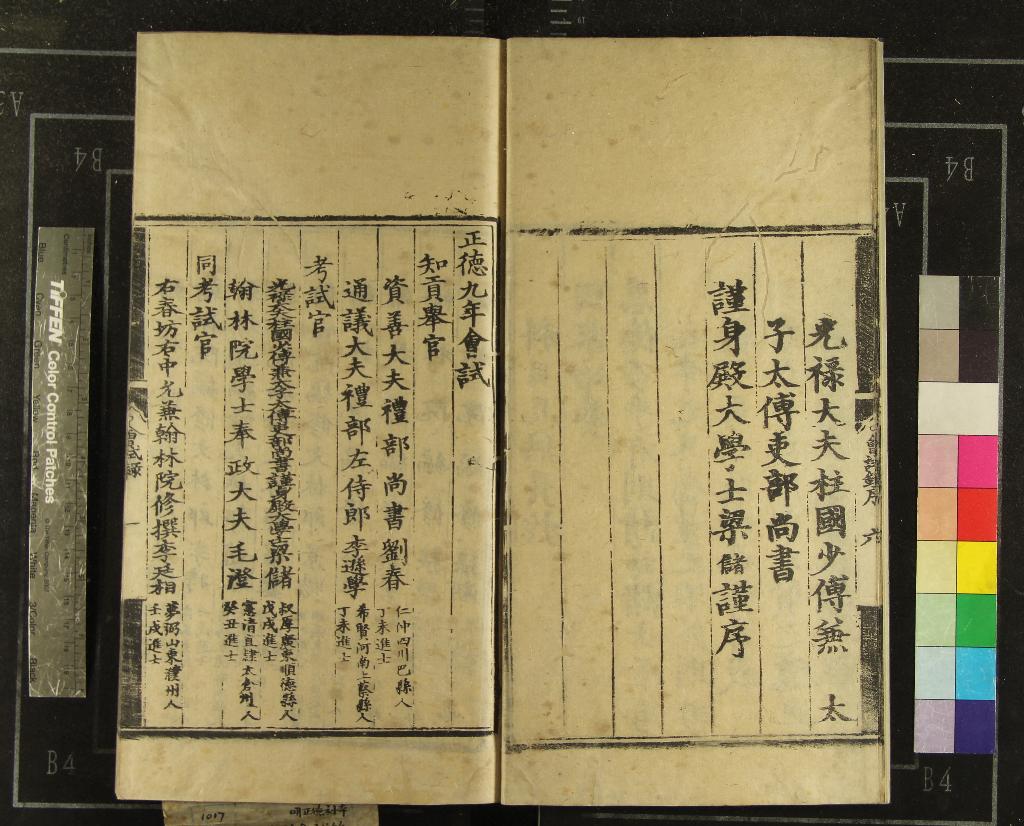 光祿大夫柱國少傅兼　太
子太傅吏部尚書
謹身殿大學士梁儲謹序
會試錄序 六
正德九年會試
知貢舉官
資善大夫禮部尚書劉春 仁仲四川巴縣人
丁未進士
通議大夫禮部左侍郎李遜學 希賢河南上蔡縣人
丁未進士
考試官
光祿大夫柱國少傅兼太子太傅吏部尚書謹身殿大學士梁儲 叔厚廣東順德縣人
戊戌進士
翰林院學士奉政大夫毛澄 憲清直隸太倉州人
癸丑進士
同考試官
右春坊右中允兼翰林院修撰李廷相 夢弼山東濮州人
壬戌進士
會試錄 一
TIFFEN Color Control Patches
B4
B4
B4
B4
A3
A4
1017